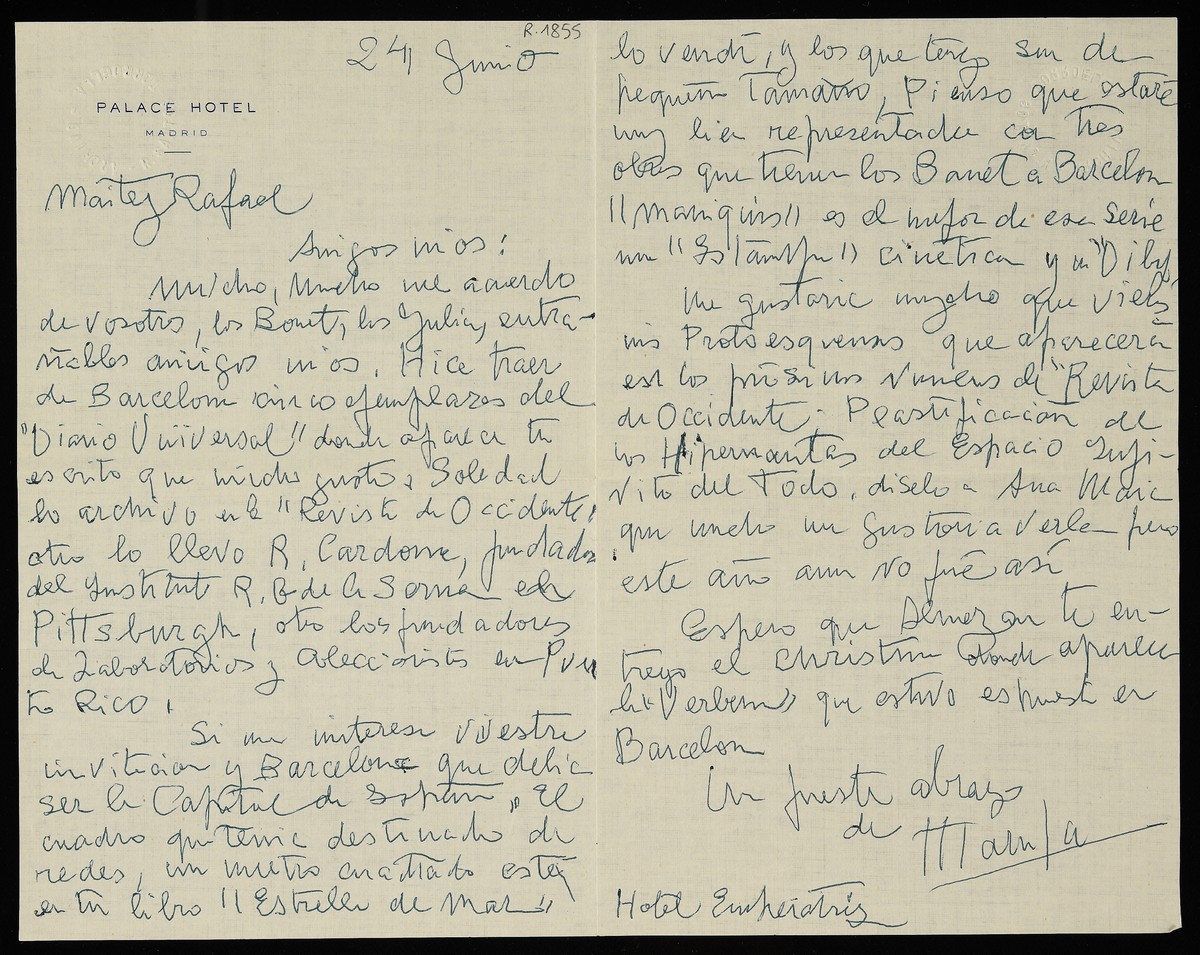 R. 1855
24 Junio
PALACE HOTEL
MADRID
Maitey Rafael
Amigos mios:
Mucho, Mucho me acuerdo
de vosotros, los Bonet, los Julia, entra-
ñables amigos mios. Hice traer
de Barcelona cinco ejemplares del
"Diario Universal" donde aparece tu
escrito que mucho gusto, Soledad
lo archivo en la "Revista de Occidente",
otro lo llevo R. Cardona, fundador
del Instituto R. G de la Serna en
Pittsburgh, otro los fundadores
de Laboratorios y coleccionista en Puer
to Rico.
Si me interesa vuestra
invitacion y Barcelona que debia
ser la Capital de España, El
cuadro que tenia destinado de
redes, un metro cuadrado está
en tu libro "Estrella de Mar"
lo vendí, y los que tengo son de
pequeño Tamaño, Pienso que estaré
muy bien representada con tres
obras que tienen los Bonet a Barcelona
"Maniquins" es el mejor de esa serie
una "Estampa" cinética y un "Dibj
Me gustaria mucho que vieras
mis Protoesquemas que aparecerá
en los prósimos numeros de "Revista
de Occidente. Plastificación de
los Hipernautas del Espacio Infi-
nito del Todo, diselo a Ana Maria
que mucho me gustaria verla pero
este año aun no fué así
Espero que Almazan te en-
trego el christma donde aparece
la "Verbena" que estuvo espuesta en
Barcelona
Un fuerte abrazo
de Maruja
Hotel Emperatriz